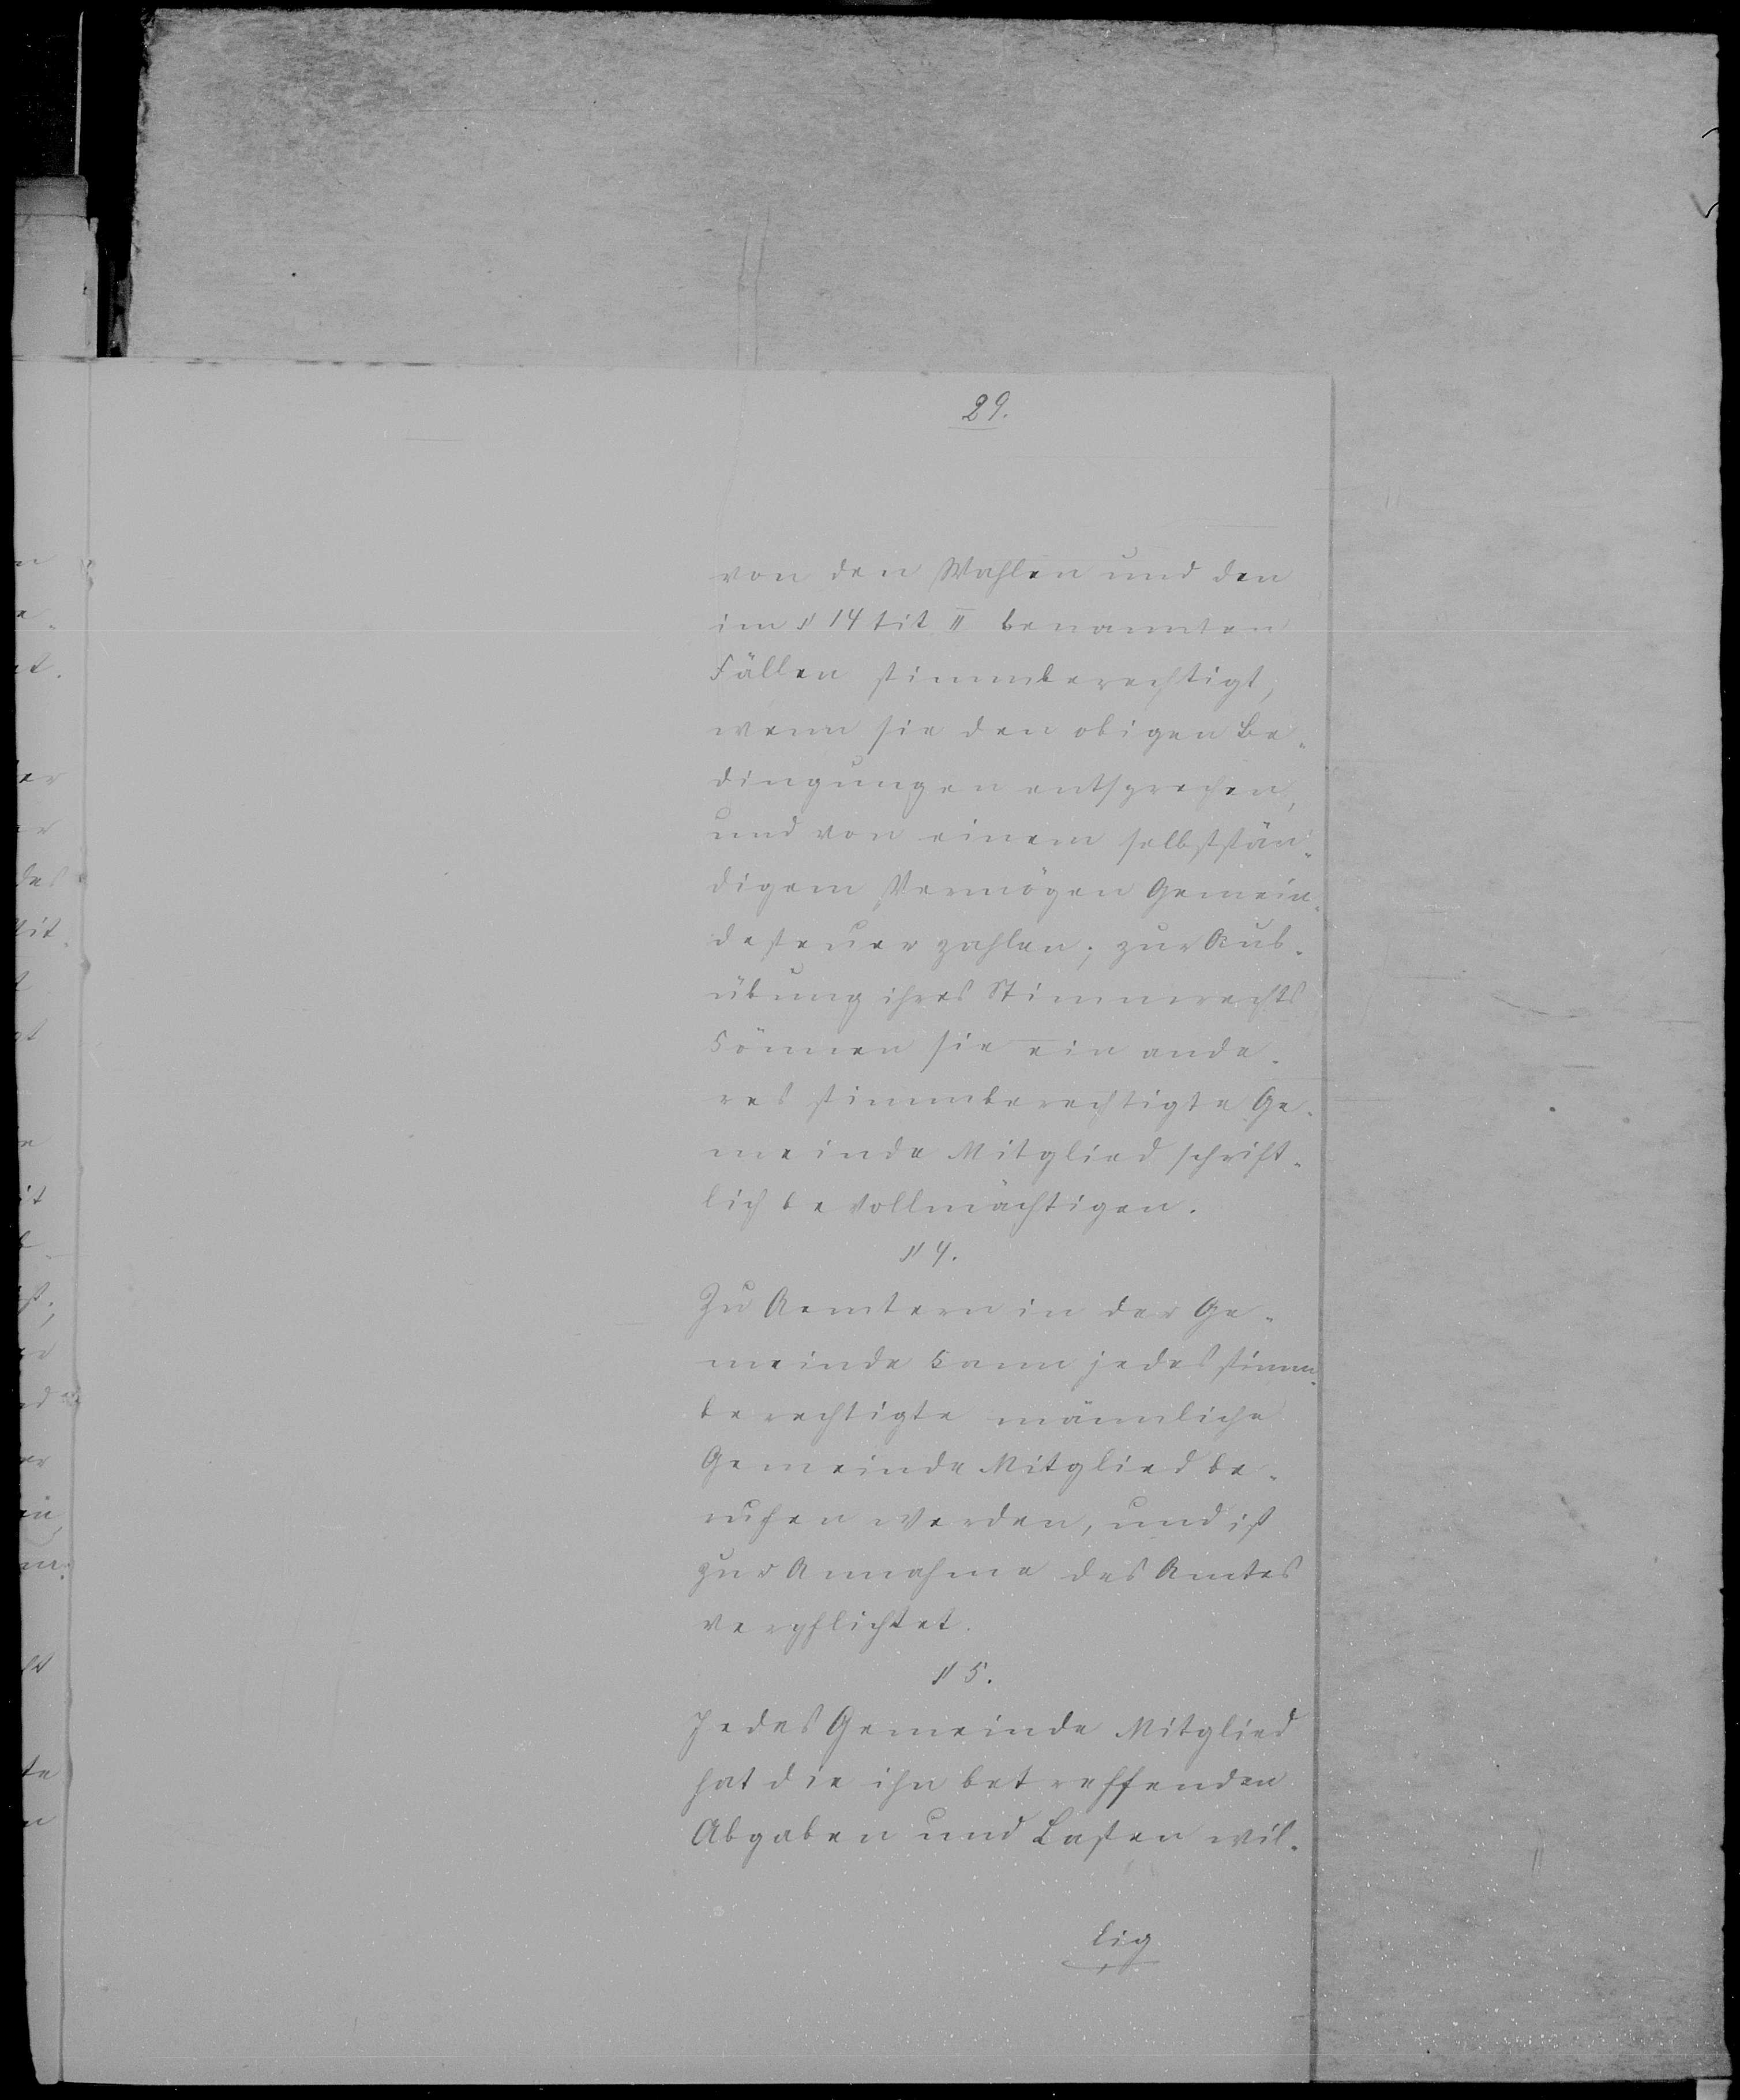 29.
von den Wahlen und den
im § 14 tit II benannten
Fällen stimmberechtigt,
wenn sie den obigen Be-
dingungen entsprechen,
und von einem selbststän-
digem Vermögen Gemein-
desteuer zahlen; zur Aus-
übung ihres Stimmrechts
können sie ein ande-
res stimmberechtigte Ge-
meinde Mitglied schrift-
lich bevollmächtigen.
§ 4.
Zu Aemtern in der Ge-
meinde kann jedes stimm-
berechtigte männliche
Gemeinde Mitglied be-
rufen werden, und ist
zur Annahme des Amtes
verpflichtet.
§ 5.
Jedes Gemeinde Mitglied
hat die ihn betreffenden
Abgaben und Lasten wil-
lig